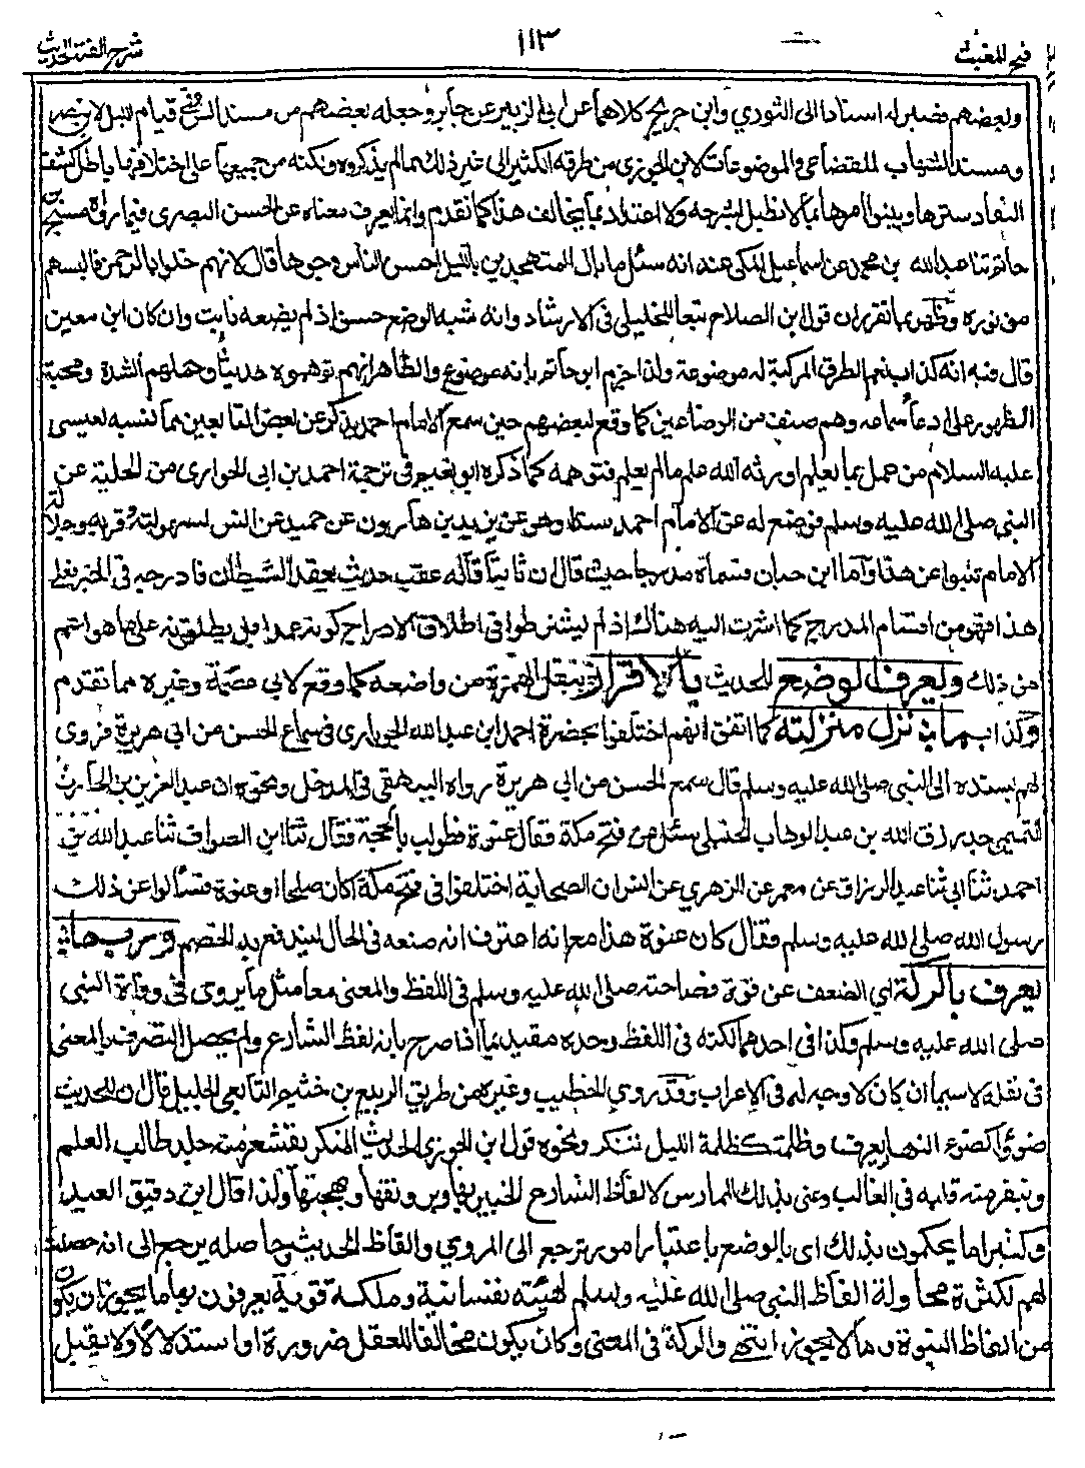 فتح المغيث
١١٣
شرح الفية الحديث
ولبعضهم فصير له اسنادا الى الثوري وابن جريج كلاهما عن ابي الزبير عن جابر وجعله بعضهم من مسند انس وفي قيام الليل لابن نصر
ومسند الشهاب للقضاعي والموضوعات لابن الجوزي من طرقه الكثير الى غير ذلك مما لم يذكروه ولكنه من جميعها على اختلافها باطل كشف
النقاد سترها وبينوا امرها بما لا نطيل بشرحه ولا اعتداد بما يخالف هذا كما تقدم وانما يعرف معناه عن الحسن البصري فيما رواه مسبح بن
حاتم ثنا عبدالله بن محمد عن اسماعيل المكي عنه انه سئل ما بال المتهجدين بالليل احسن الناس وجوها قال لانهم خلوا بالرحمن فالبسهم
من نوره وظهر بما تقرران قول ابن الصلاح تبعا للخليلي في الارشاد وانه شبه الوضع حسن اذ لم يضعه ثابت وان كان ابن معين
قال فيه انه كذاب نعم الطرق المركبة له موضوعة ولذا جزم ابو حاتم بانه موضوع والظاهر انهم توهموه حديثا وحملهم الشره ومحبة
الظهور على ادعاء سماعه وهم صنف من الوضاعين كما وقع لبعضهم حين سمع الامام احمد يذكر عن بعض التابعين مما نسبه لعيسى
عليه السلام من عمل بما يعلم اورثه الله علم ما لم يعلم فتوهمه كما ذكره ابو نعيم في ترجمة احمد بن ابي الحواري من الحلية عن
النبي صلى الله عليه وسلم فوضع له عن الامام احمد سندا وهو عن يزيد بن هارون عن حميد عن انس لسهولته وقربه وجلالة
الامام تنبوا عن هذا واما ابن حبان فسماه مدرجا حيث قال ان ثابتا قاله عقب حديث يعقد الشيطان فادرجه في الخبر فعلى
هذا فهو من اقسام المدرج كما اشرت اليه هنالك اذ لم يشترطوا في اطلاق الادراج كونه عمدا بل يطلقونه على ما هو اعم
من ذلك ويعرف الوضع للحديث بالاقرار بنقل الهمزة من واضعه كما وقع لابي عصمة وغيره مما تقدم
وكذا بما نزل منزلته كما اتفق انهم اختلفوا بحضرة احمد ابن عبد الله الجويباري في سماع الحسن من ابي هريرة فروى
لهم بسنده الى النبي صلى الله عليه وسلم قال سمع الحسن من ابي هريرة رواه البيهقي في المدخل ونحوه ان عبد العزيز بن الحارث
التميمي جد رزق الله بن عبد الوهاب الحنبلي سئل عن فتح مكة فقال عنوة فطولب بالحجة فقال ثنا ابن الصواف ثنا عبد الله بن
احمد ثنا ابي ثنا عبد الرزاق عن معمر عن الزهري عن انس ان الصحابة اختلفوا في فتح مكة اكان صلحا او عنوة فسألوا عن ذلك
رسول الله صلى الله عليه وسلم فقال كان عنوة هذا مع انه اعترف انه صنعه في الحال ليندفع به الخصم وربما
يعرف بالركة اي الضعف عن قوة فصاحته صلى الله عليه وسلم في اللفظ والمعنى معا مثل ما يروى في وفاة النبي
صلى الله عليه وسلم وكذا في احدهما لكنه في اللفظ وحده مقيد بما اذا صرح بانه لفظ الشارع ولم يحصل التصرف بالمعنى
في نقله لا سيما ان كان لا وجه له في الاعراب وقد روى الخطيب وغيره من طريق الربيع بن خثيم التابعي الجليل قال ان للحديث
ضوءا كضوء النهار يعرف وظلمة كظلمة الليل تنكر ونحوه قول ابن الجوزي الحديث المنكر يقشعر منه جلد طالب العلم
وينفر منه قلبه في الغالب وعنى بذلك الممارس لالفاظ الشارع الخبير بها وبرونقها وبهجتها ولذا قال ابن دقيق العيد
وكثيرا ما يحكمون بذلك اى بالوضع باعتبار امور ترجع الى المروي والفاظ الحديث وحاصله يرجع الى انه حصلت
لهم لكثرة محاولة الفاظ النبي صلى الله عليه وسلم هيئة نفسانية وملكة قوية يعرفون بها ما يجوز ان يكون
من الفاظ النبوة وما لا يجوز انتهى والركة في المعنى وكان يكون مخالفا للعقل ضرورة او استدلالا ولا يقبل